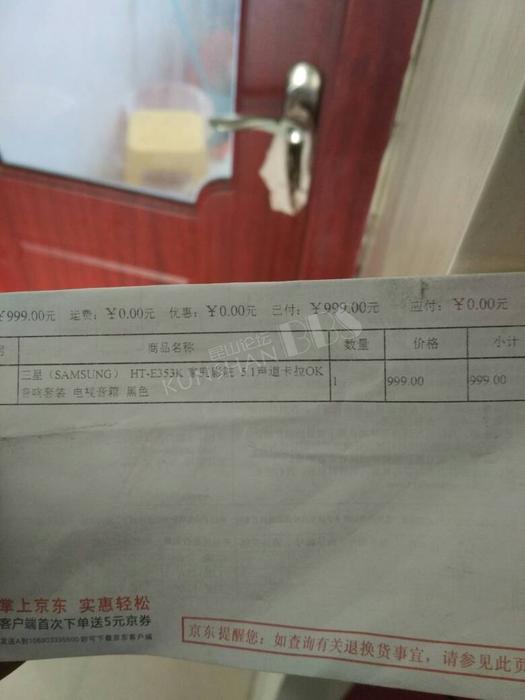 ¥999.00元 运费：¥0.00元 优惠：¥0.00元 已付：¥999.00元 应付：¥0.00元
号 商品名称 数量 价格 小计
三星（SAMSUNG） HT-E353K 家庭影院 5.1声道卡拉OK 1 999.00 999.00
音响套装 电视音箱 黑色
昆山论坛 BBS
KUNSHAN
掌上京东 实惠轻松
客户端首次下单送5元京券
即可下载京东客户端
京东提醒您：如查询有关退换货事宜，请参见此页